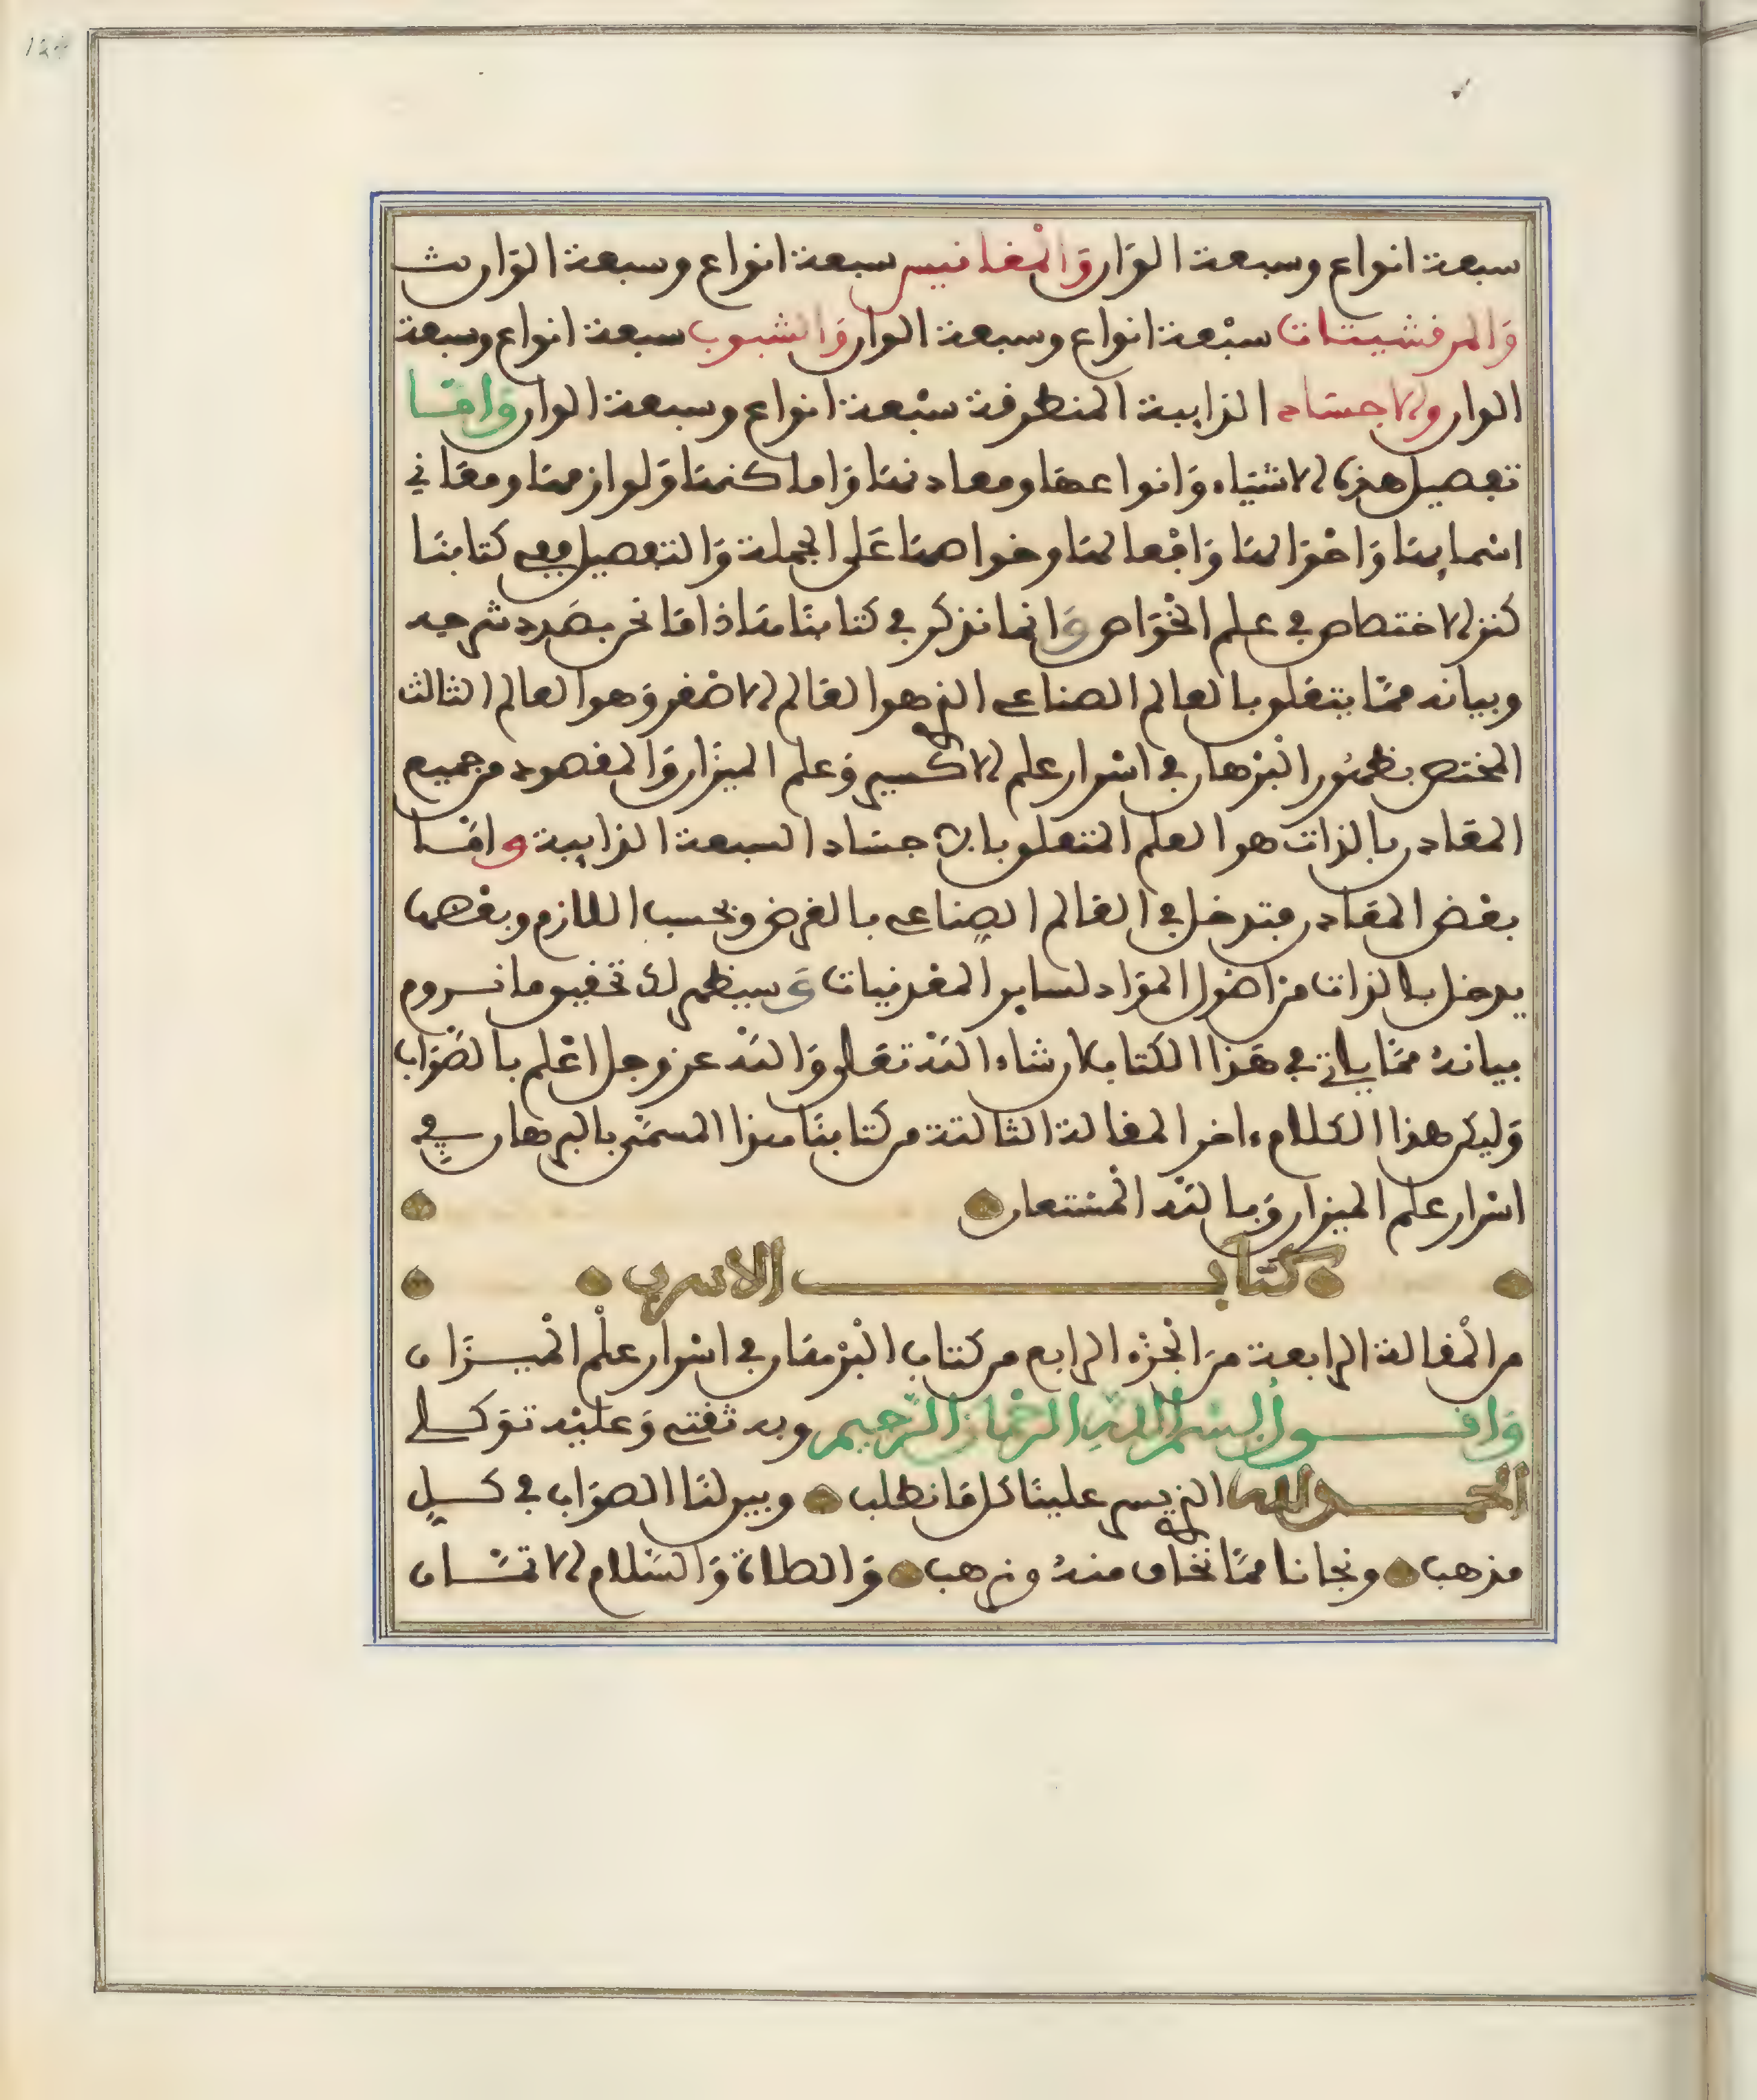 سبعة انواع وسبعة الوان والمغانيس سبعة انواع وسبعة الوان
والمرقشيتات سبعة انواع وسبعة الوان والشبوب سبعة انواع وسبعة
الوان والاجساد الذايبة المنطرفة سبعة انواع وسبعة الوان واما
تفصيل هذه الاشياء وانواعها ومعادنها واماكنها ولوازمها ومعاني
اسمايها واحوالها وافعالها وخواصها على الجملة والتفصيل ففي كتابنا
كنز الاختصاص في علم الخواص وانما نذكر في كتابنا هذا ما نحن بصدد شرحه
وبيانه مما يتعلق بالعالم الصناعي الذي هو العالم الاصغر وهو العالم الثالث
المختص بظهور البرهان في اسرار علم الاكسير وعلم الميزان والمقصود من جميع
المعادن بالذات هو العلم المتعلق بالاجساد السبعة الذايبة واما
بعض المعادن فتدخل في العالم الصناعي بالعرض وبحسب اللازم وبعضها
يدخل بالذات من اصول المواد لساير المعدنيات وسيظهر لك تحقيق ما نروم
بيانه مما ياتي في هذا الكتاب ان شاء الله تعلى والله عز وجل اعلم بالصواب
وليكن هذا الكلام ءاخر المقالة الثالثة من كتابنا هذا المسمى بالبرهان في
اسرار علم الميزان وبالله المستعان
كتاب الاسرب
من المقالة الرابعة من الجزء الرابع من كتاب البرهان في اسرار علم الميزان
واقول بسم الله الرحمان الرحيم وبه ثقتي وعليه توكلي
الحمد لله الذي يسر علينا كل ما نطلب وبين لنا الصواب في كل
مذهب ونجانا مما نخاف منه ونرهب والصلاة والسلام الاتمان